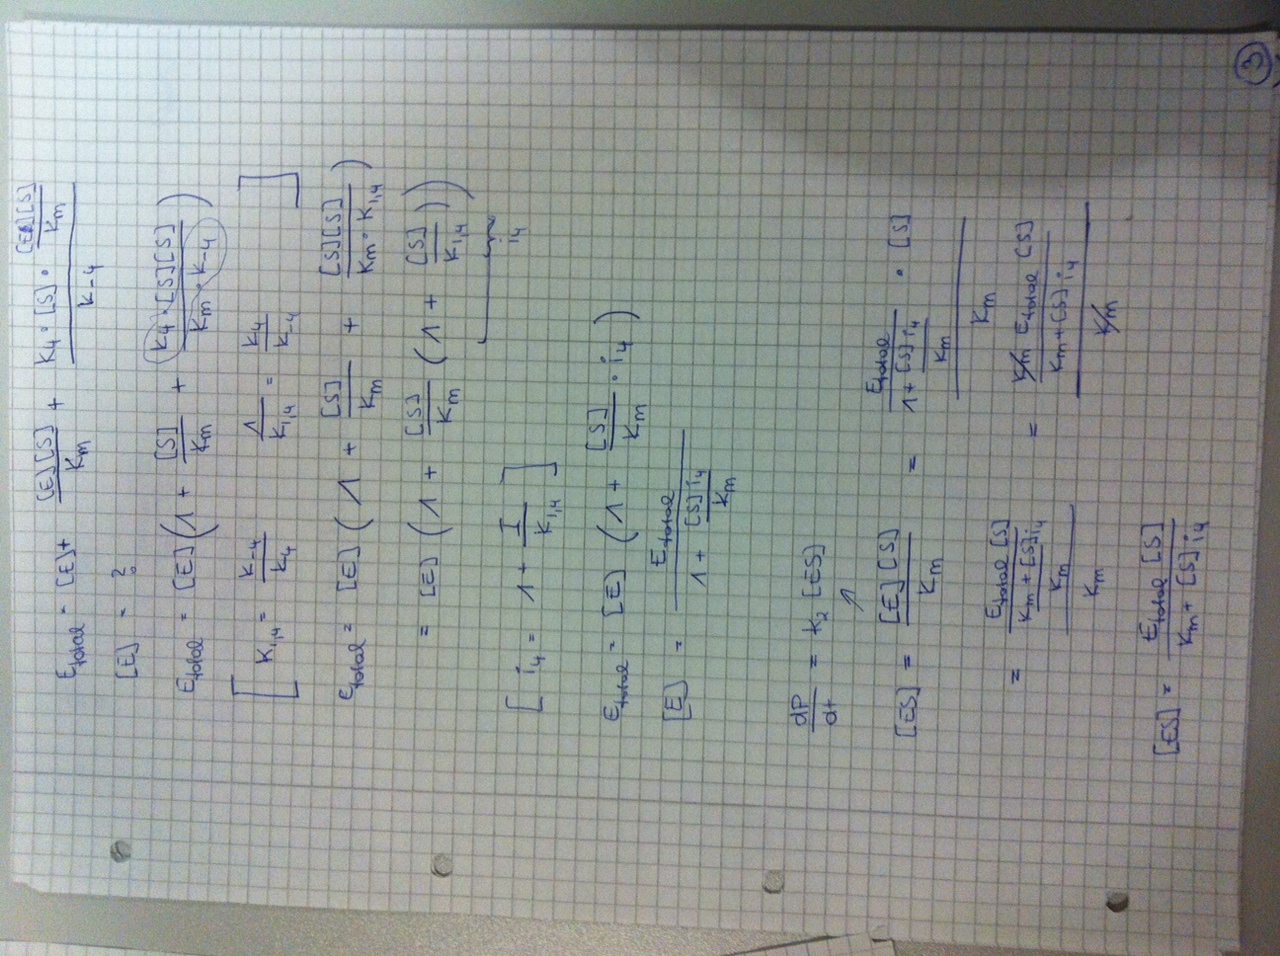 ③
E_total = [E] + [E][S]/K_m + k_4 · [S] · [E][S]/K_m / k_-4
[E] = ?
E_total = [E] (1 + [S]/K_m + k_4 · [S][S]/K_m · k_-4)
[K_i,4 = k_-4/k_4   1/K_i,4 = k_4/k_-4]
E_total = [E] (1 + [S]/K_m + [S][S]/K_m · K_i,4)
= [E] (1 + [S]/K_m (1 + [S]/K_i,4))
i_4
[i_4 = 1 + I/K_i,4]
E_total = [E] (1 + [S]/K_m · i_4)
[E] = E_total / 1 + [S] i_4/K_m
dP/dt = k_2 [ES]
[ES] = [E][S]/K_m = E_total / 1 + [S] i_4/K_m · [S] / K_m
= E_total [S] / K_m + [S] i_4/K_m / K_m = K_m E_total [S] / K_m + [S] i_4 / K_m
[ES] = E_total [S] / K_m + [S] i_4